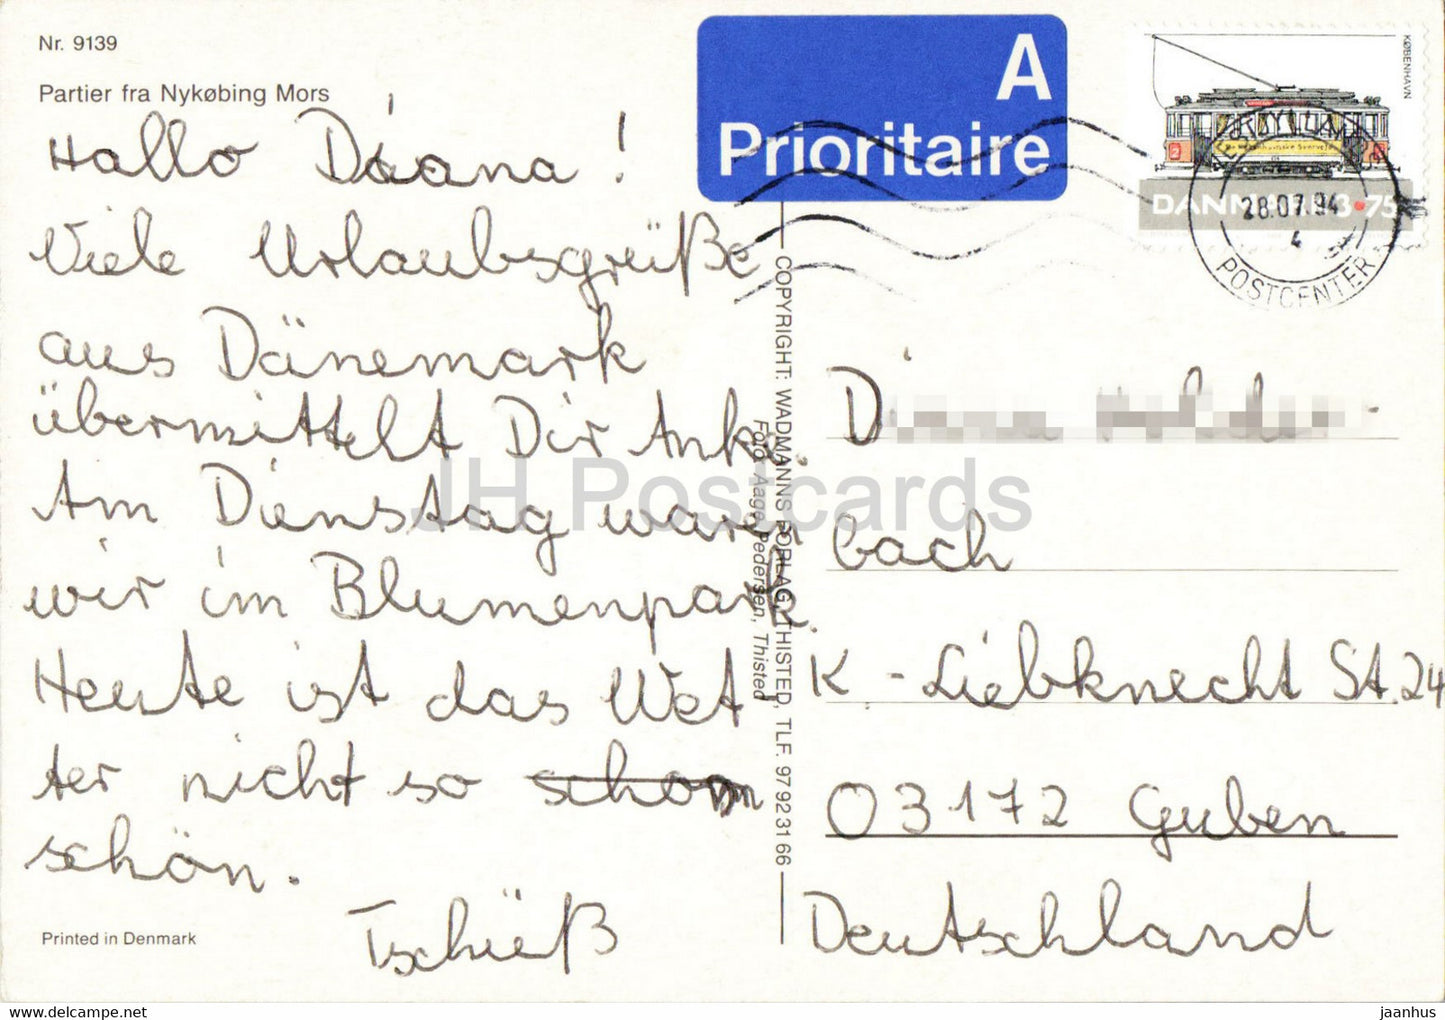 Nr. 9139
Partier fra Nykøbing Mors
Hallo Diana!
Viele Urlaubsgrüße
aus Dänemark
übermittelt Dir Anke.
Am Dienstag waren
wir im Blumenpark.
Heute ist das Wet
ter nicht so schon
schön.
Tschüß
Printed in Denmark
COPYRIGHT: WADMANNS FORLAG, THISTED, TLF. 97 92 31 66
Foto: Aage Pedersen, Thisted
A
Prioritaire
KØBENHAVN
DANMARK 3.75
28.07.94
4
POSTCENTER
bach
K-Liebknecht St. 24
03172 Guben
Deutschland
JH Postcards
https://www.ebay.com/usr/jhpostcards
jaanhus